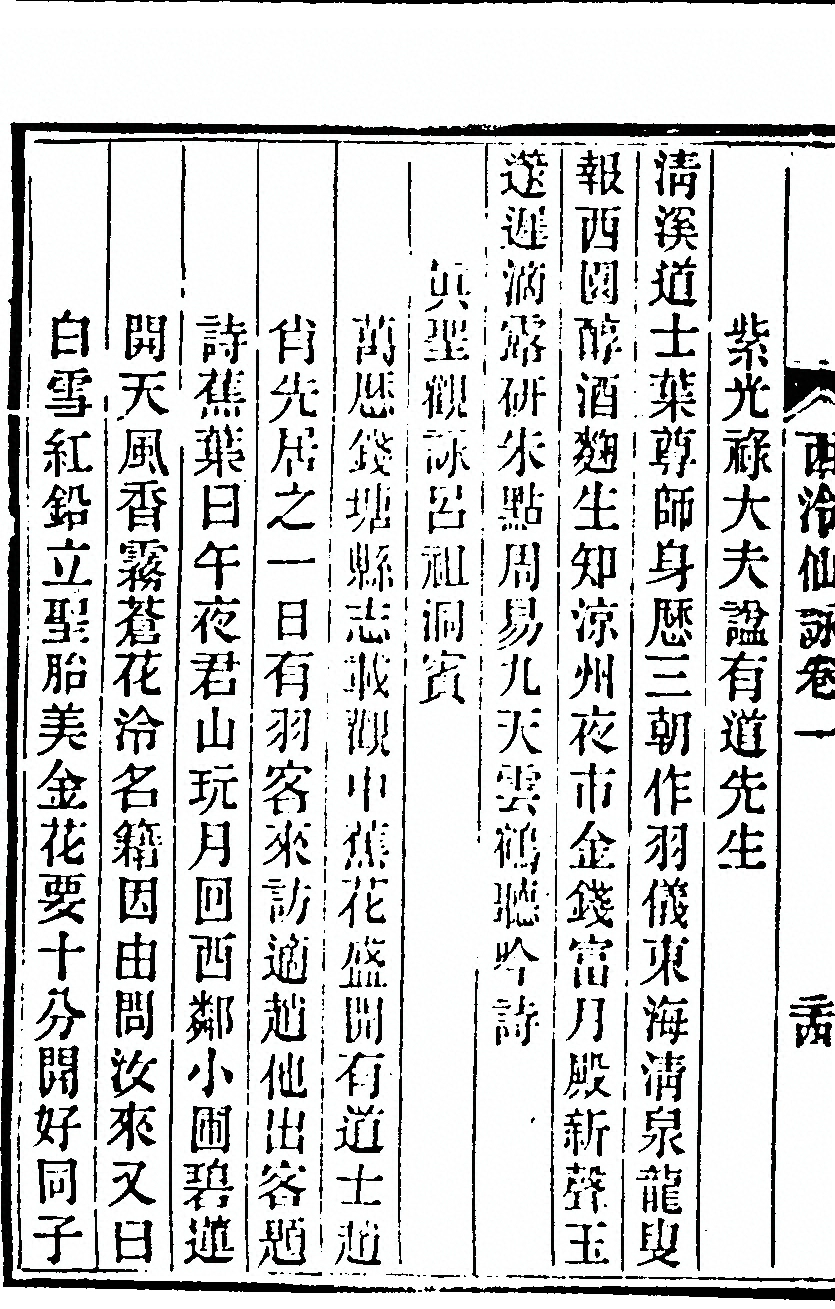 西泠仙詠卷一
紫光祿大夫諡有道先生
淸溪道士葉尊師身歷三朝作羽儀東海淸泉龍叟
報西園醇酒麴生知涼州夜市金錢富月殿新聲玉
篴遲滴露研朱點周易九天雲鶴聽吟詩
眞聖觀詠呂祖洞賓
萬歷錢塘縣志載觀中蕉花盛開有道士趙
肖先居之一日有羽客來訪適趙他出客題
詩蕉葉曰午夜君山玩月回西鄰小圃碧蓮
開天風香霧蒼花冷名籍因由問汝來又曰
白雪紅鉛立聖胎美金花要十分開好同子